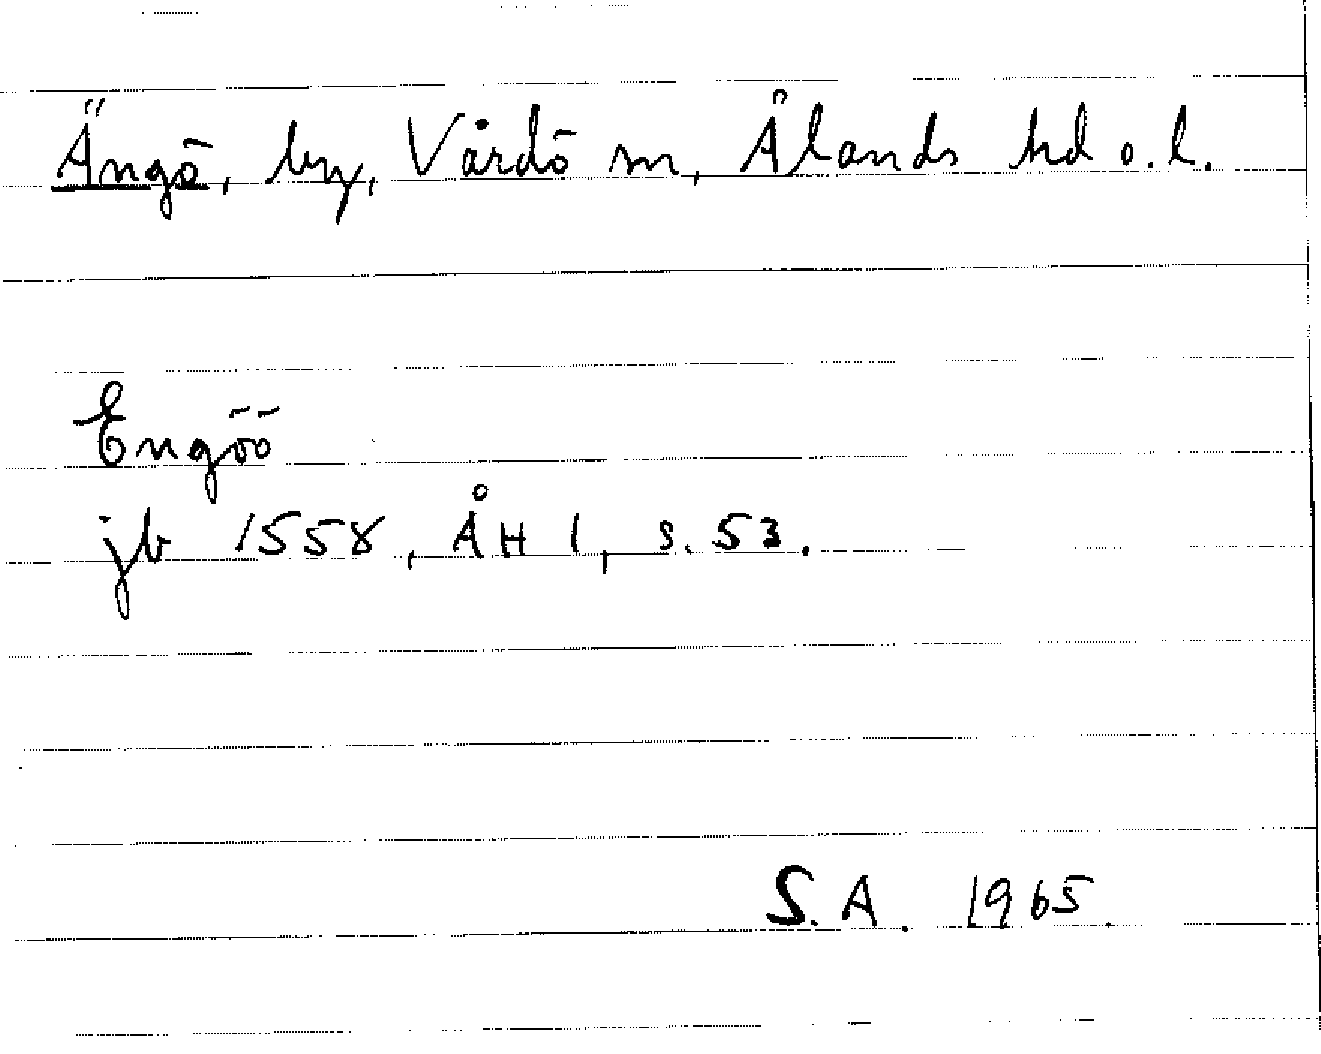 Ängö, by, Vårdö sn, Ålands hd o. l.
Engöö
jb 1558, ÅH 1, s. 53.
S. A. 1965.